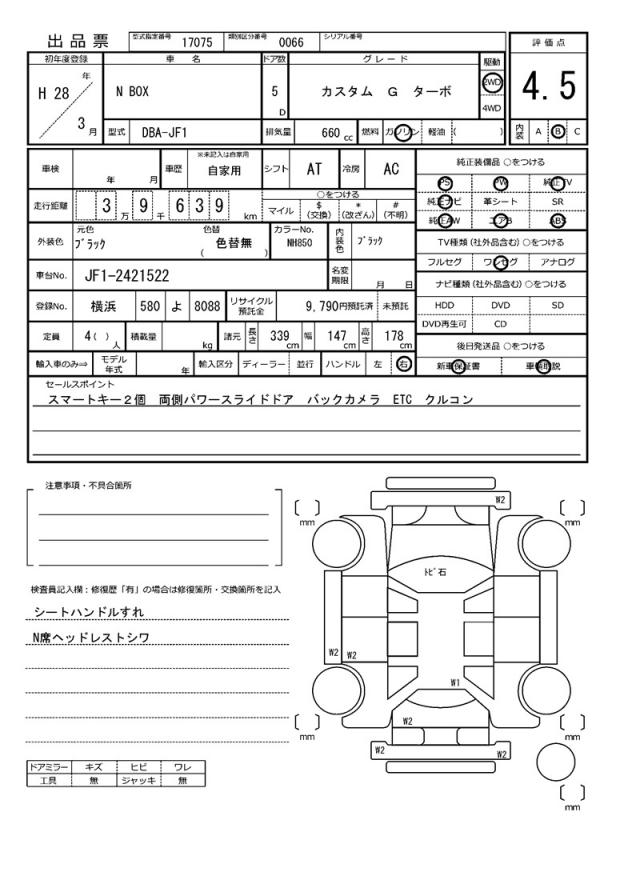 出品票 型式指定番号 17075 類別区分番号 0066 シリアル番号
初年度登録 車名 ドア数 グレード 駆動 評価点
H 28 年 3 月 N BOX 5 D カスタム G ターボ 2WD 4WD 4.5
型式 DBA-JF1 排気量 660 cc 燃料 ガソリン 軽油 ( ) 内装 A B C
車検 年 月 車歴 ※未記入は自家用 自家用 シフト AT 冷房 AC
走行距離 3 万 9 千 6 3 9 km ○をつける
マイル $(交換) *(改ざん) #(不明)
外装色 元色 ブラック 色替 色替無 ( ) カラーNo. NH850 内装色 ブラック
車台No. JF1-2421522 名変期限 月 日
登録No. 横浜 580 よ 8088 リサイクル預託金 9,790円預託済 未預託
定員 4( )人 積載量 kg 諸元 長さ 339 cm 幅 147 cm 高さ 178 cm
輸入車のみ⇒ モデル年式 年 輸入区分 ディーラー 並行 ハンドル 左 右
純正装備品 ○をつける
PS PW 純正TV
純正ナビ 革シート SR
純正AW エアB ABS
TV種類(社外品含む)○をつける
フルセグ ワンセグ アナログ
ナビ種類(社外品含む)○をつける
HDD DVD SD
DVD再生可 CD
後日発送品 ○をつける
新車保証書 車輌取説
セールスポイント
スマートキー2個 両側パワースライドドア バックカメラ ETC クルコン
注意事項・不具合箇所
検査員記入欄:修復歴「有」の場合は修復箇所・交換箇所を記入
シートハンドルすれ
N席ヘッドレストシワ
ドアミラー キズ ヒビ ワレ
工具 無 ジャッキ 無
W2
[ ] mm [ ] mm
トビ石
W2 W2
W1
W2
[ ] mm [ ] mm
W2 W2
[ ] mm